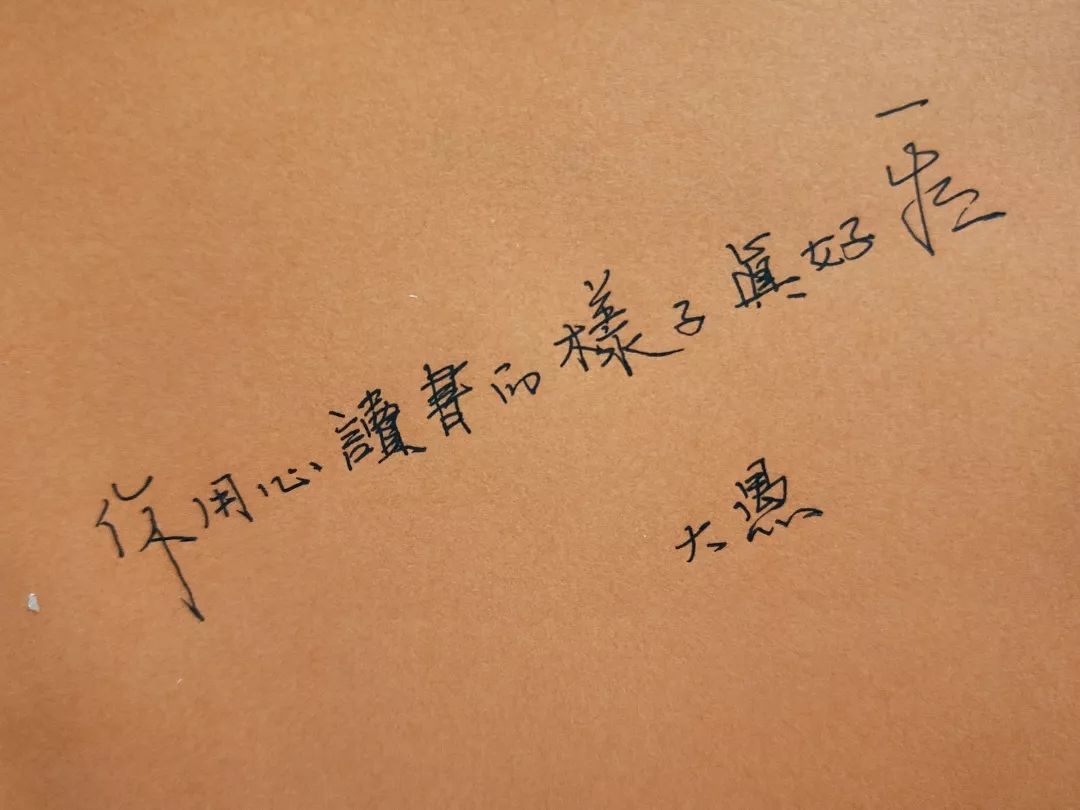 你用心讀書的樣子眞好
大愚